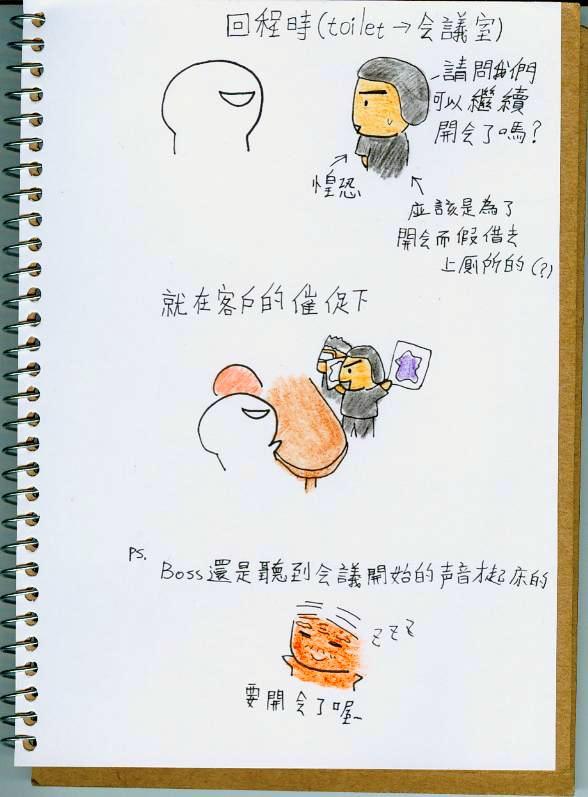 回程時(toilet→会議室)
請問我們
可以繼續
開会了嗎?
惶恐
应該是為了
開会而假借去
上厠所的(?)
就在客戶的催促下
PS.
Boss還是聽到会議開始的声音才起床的
zzz
要開会了喔~